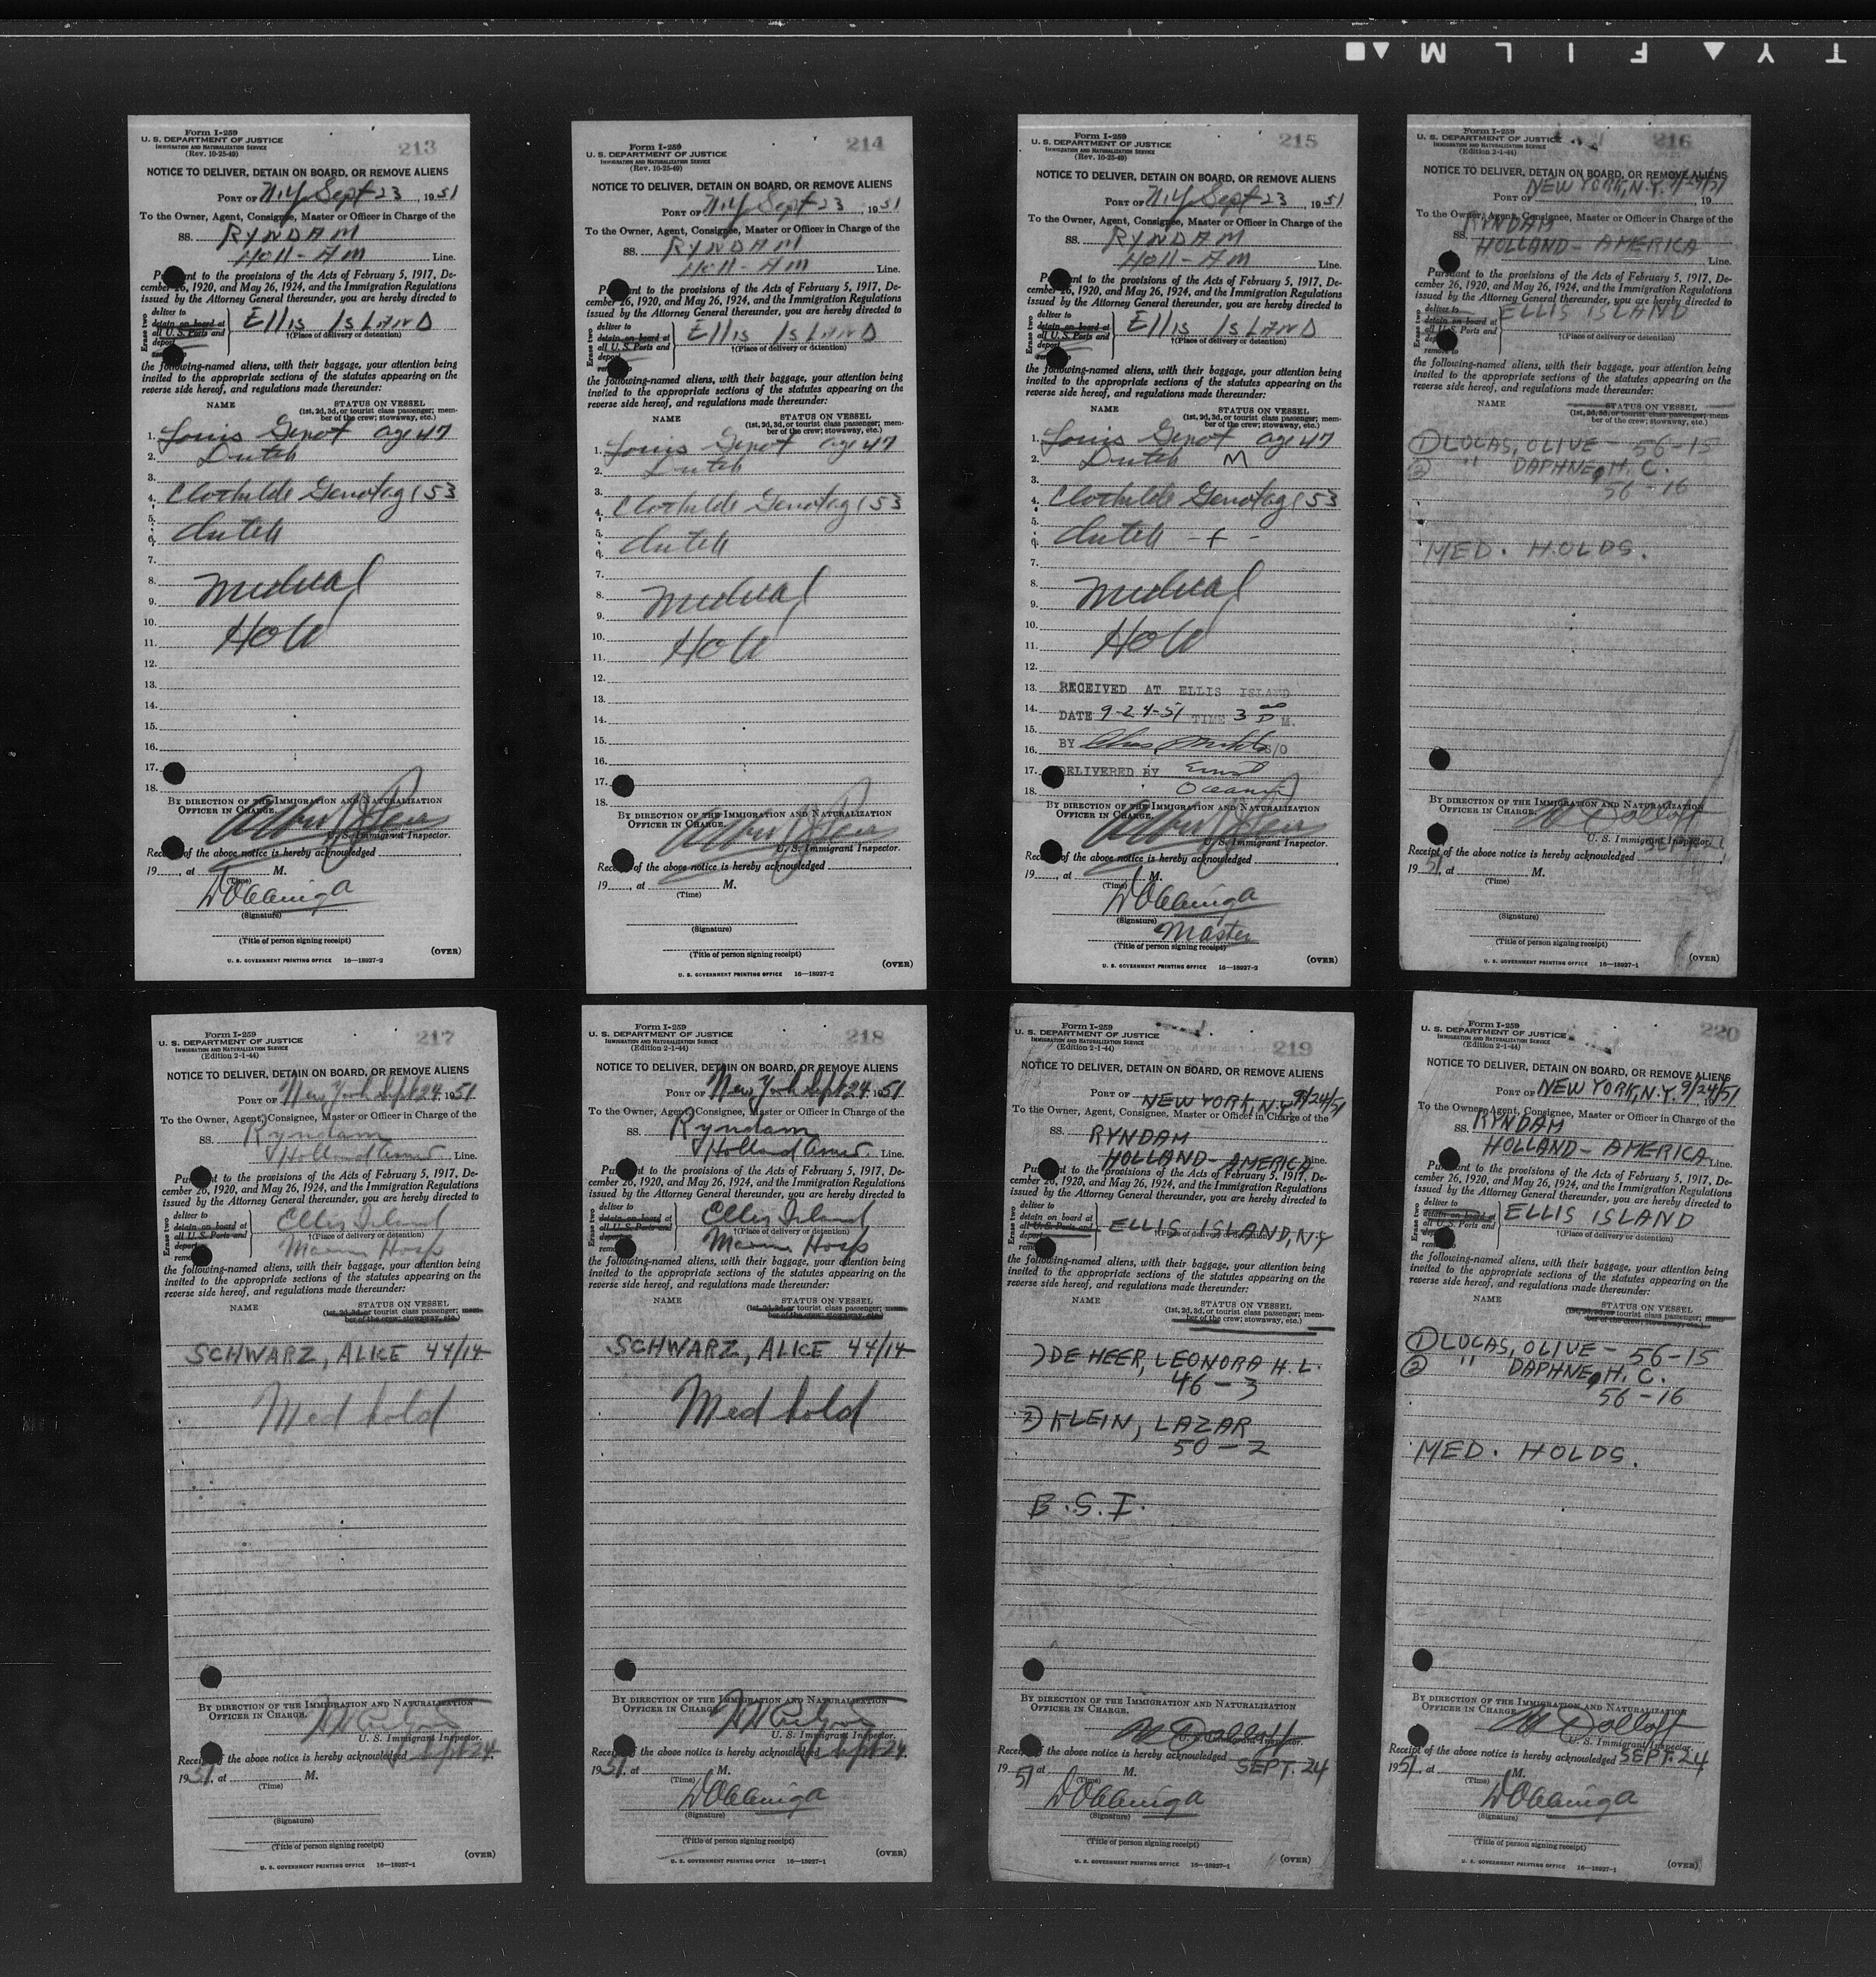 TY▲FILM▲■
Form I-259
U. S. DEPARTMENT OF JUSTICE
IMMIGRATION AND NATURALIZATION SERVICE
(Rev. 10-25-49)
213
NOTICE TO DELIVER, DETAIN ON BOARD, OR REMOVE ALIENS
PORT OF N.Y. Sept 23, 1951
To the Owner, Agent, Consignee, Master or Officer in Charge of the
SS. RYNDAM
Holl-Am Line.
Pursuant to the provisions of the Acts of February 5, 1917, De-
cember 26, 1920, and May 26, 1924, and the Immigration Regulations
issued by the Attorney General thereunder, you are hereby directed to
Erase two
deliver to
detain on board at
all U. S. Ports and
deport
Ellis ISLAND
†(Place of delivery or detention)
the following-named aliens, with their baggage, your attention being
invited to the appropriate sections of the statutes appearing on the
reverse side hereof, and regulations made thereunder:
NAME STATUS ON VESSEL
(1st, 2d, 3d, or tourist class passenger; mem-
ber of the crew; stowaway, etc.)
1. Louis Genot age 47
2. Dutch
3.
4. Clothilde Genot age 53
5.
6. Dutch
7.
8. Medical
9.
10.
11. Hold
12.
13.
14.
15.
16.
17.
18.
BY DIRECTION OF THE IMMIGRATION AND NATURALIZATION
OFFICER IN CHARGE.
U. S. Immigrant Inspector.
Receipt of the above notice is hereby acknowledged
19 , at M.
(Time)
(Signature)
(Title of person signing receipt)
(OVER)
U. S. GOVERNMENT PRINTING OFFICE 16—18927-2
Form I-259
U. S. DEPARTMENT OF JUSTICE
IMMIGRATION AND NATURALIZATION SERVICE
(Rev. 10-25-49)
214
NOTICE TO DELIVER, DETAIN ON BOARD, OR REMOVE ALIENS
PORT OF N.Y. Sept 23, 1951
To the Owner, Agent, Consignee, Master or Officer in Charge of the
SS. RYNDAM
Holl-Am Line.
Pursuant to the provisions of the Acts of February 5, 1917, De-
cember 26, 1920, and May 26, 1924, and the Immigration Regulations
issued by the Attorney General thereunder, you are hereby directed to
Erase two
deliver to
detain on board at
all U. S. Ports and
deport
Ellis ISLAND
†(Place of delivery or detention)
the following-named aliens, with their baggage, your attention being
invited to the appropriate sections of the statutes appearing on the
reverse side hereof, and regulations made thereunder:
NAME STATUS ON VESSEL
(1st, 2d, 3d, or tourist class passenger; mem-
ber of the crew; stowaway, etc.)
1. Louis Genot age 47
2. Dutch
3.
4. Clothilde Genot age 53
5.
6. Dutch
7.
8. Medical
9.
10.
11. Hold
12.
13.
14.
15.
16.
17.
18.
BY DIRECTION OF THE IMMIGRATION AND NATURALIZATION
OFFICER IN CHARGE.
U. S. Immigrant Inspector.
Receipt of the above notice is hereby acknowledged
19 , at M.
(Time)
(Signature)
(Title of person signing receipt)
(OVER)
U. S. GOVERNMENT PRINTING OFFICE 16—18927-2
Form I-259
U. S. DEPARTMENT OF JUSTICE
IMMIGRATION AND NATURALIZATION SERVICE
(Rev. 10-25-49)
215
NOTICE TO DELIVER, DETAIN ON BOARD, OR REMOVE ALIENS
PORT OF N.Y. Sept 23, 1951
To the Owner, Agent, Consignee, Master or Officer in Charge of the
SS. RYNDAM
Holl-Am Line.
Pursuant to the provisions of the Acts of February 5, 1917, De-
cember 26, 1920, and May 26, 1924, and the Immigration Regulations
issued by the Attorney General thereunder, you are hereby directed to
Erase two
deliver to
detain on board at
all U. S. Ports and
deport
Ellis ISLAND
†(Place of delivery or detention)
the following-named aliens, with their baggage, your attention being
invited to the appropriate sections of the statutes appearing on the
reverse side hereof, and regulations made thereunder:
NAME STATUS ON VESSEL
(1st, 2d, 3d, or tourist class passenger; mem-
ber of the crew; stowaway, etc.)
1. Louis Genot age 47
2. Dutch M
3.
4. Clothilde Genot age 53
5.
6. Dutch - f -
7.
8. Medical
9.
10.
11. Hold
12.
13. RECEIVED AT ELLIS ISLAND
14. DATE 9-24-51 TIME 3 00 P M.
15.
16. BY S/O
17. DELIVERED BY
18.
BY DIRECTION OF THE IMMIGRATION AND NATURALIZATION
OFFICER IN CHARGE.
U. S. Immigrant Inspector.
Receipt of the above notice is hereby acknowledged
19 , at M.
(Time)
(Signature)
Master
(Title of person signing receipt)
(OVER)
U. S. GOVERNMENT PRINTING OFFICE 16—18927-2
Form I-259
U. S. DEPARTMENT OF JUSTICE
IMMIGRATION AND NATURALIZATION SERVICE
(Edition 2-1-44)
216
NOTICE TO DELIVER, DETAIN ON BOARD, OR REMOVE ALIENS
PORT OF NEW YORK, N.Y. 9/24/51, 19
To the Owner, Agent, Consignee, Master or Officer in Charge of the
SS. RYNDAM
HOLLAND-AMERICA Line.
Pursuant to the provisions of the Acts of February 5, 1917, De-
cember 26, 1920, and May 26, 1924, and the Immigration Regulations
issued by the Attorney General thereunder, you are hereby directed to
Erase two
deliver to
detain on board at
all U. S. Ports and
remove to
ELLIS ISLAND
†(Place of delivery or detention)
the following-named aliens, with their baggage, your attention being
invited to the appropriate sections of the statutes appearing on the
reverse side hereof, and regulations made thereunder:
NAME STATUS ON VESSEL
(1st, 2d, 3d, or tourist class passenger; mem-
ber of the crew; stowaway, etc.)
① LUCAS, OLIVE - 56-15
② " DAPHNE, H. C.
56-16
MED. HOLDS.
BY DIRECTION OF THE IMMIGRATION AND NATURALIZATION
OFFICER IN CHARGE.
M Dolloff
U. S. Immigrant Inspector.
Receipt of the above notice is hereby acknowledged
1951, at M.
(Time)
(Signature)
(Title of person signing receipt)
(OVER)
U. S. GOVERNMENT PRINTING OFFICE 16—18927-1
Form I-259
U. S. DEPARTMENT OF JUSTICE
IMMIGRATION AND NATURALIZATION SERVICE
(Edition 2-1-44)
217
NOTICE TO DELIVER, DETAIN ON BOARD, OR REMOVE ALIENS
PORT OF New York Sept 24, 1951
To the Owner, Agent, Consignee, Master or Officer in Charge of the
SS. Ryndam
Holland Amer. Line.
Pursuant to the provisions of the Acts of February 5, 1917, De-
cember 26, 1920, and May 26, 1924, and the Immigration Regulations
issued by the Attorney General thereunder, you are hereby directed to
Erase two
deliver to
detain on board at
all U. S. Ports and
deport
Ellis Island
†(Place of delivery or detention)
Marine Hosp
the following-named aliens, with their baggage, your attention being
invited to the appropriate sections of the statutes appearing on the
reverse side hereof, and regulations made thereunder:
NAME STATUS ON VESSEL
(1st, 2d, 3d, or tourist class passenger; mem-
ber of the crew; stowaway, etc.)
SCHWARZ, ALICE 44/14
Med hold
BY DIRECTION OF THE IMMIGRATION AND NATURALIZATION
OFFICER IN CHARGE.
U. S. Immigrant Inspector.
Receipt of the above notice is hereby acknowledged Sept 24
1951, at M.
(Time)
(Signature)
(Title of person signing receipt)
(OVER)
U. S. GOVERNMENT PRINTING OFFICE 16—18927-1
Form I-259
U. S. DEPARTMENT OF JUSTICE
IMMIGRATION AND NATURALIZATION SERVICE
(Edition 2-1-44)
218
NOTICE TO DELIVER, DETAIN ON BOARD, OR REMOVE ALIENS
PORT OF New York Sept 24, 1951
To the Owner, Agent, Consignee, Master or Officer in Charge of the
SS. Ryndam
Holland Amer. Line.
Pursuant to the provisions of the Acts of February 5, 1917, De-
cember 26, 1920, and May 26, 1924, and the Immigration Regulations
issued by the Attorney General thereunder, you are hereby directed to
Erase two
deliver to
detain on board at
all U. S. Ports and
deport
Ellis Island
†(Place of delivery or detention)
Marine Hosp
the following-named aliens, with their baggage, your attention being
invited to the appropriate sections of the statutes appearing on the
reverse side hereof, and regulations made thereunder:
NAME STATUS ON VESSEL
(1st, 2d, 3d, or tourist class passenger; mem-
ber of the crew; stowaway, etc.)
SCHWARZ, ALICE 44/14
Med hold
BY DIRECTION OF THE IMMIGRATION AND NATURALIZATION
OFFICER IN CHARGE.
U. S. Immigrant Inspector.
Receipt of the above notice is hereby acknowledged Sept 24
1951, at M.
(Time)
(Signature)
(Title of person signing receipt)
(OVER)
U. S. GOVERNMENT PRINTING OFFICE 16—18927-1
Form I-259
U. S. DEPARTMENT OF JUSTICE
IMMIGRATION AND NATURALIZATION SERVICE
(Edition 2-1-44)
219
NOTICE TO DELIVER, DETAIN ON BOARD, OR REMOVE ALIENS
PORT OF NEW YORK, N.Y. 9/24/51
To the Owner, Agent, Consignee, Master or Officer in Charge of the
SS. RYNDAM
HOLLAND-AMERICA Line.
Pursuant to the provisions of the Acts of February 5, 1917, De-
cember 26, 1920, and May 26, 1924, and the Immigration Regulations
issued by the Attorney General thereunder, you are hereby directed to
Erase two
deliver to
detain on board at
all U. S. Ports and
deport
ELLIS ISLAND, N.Y
†(Place of delivery or detention)
the following-named aliens, with their baggage, your attention being
invited to the appropriate sections of the statutes appearing on the
reverse side hereof, and regulations made thereunder:
NAME STATUS ON VESSEL
(1st, 2d, 3d, or tourist class passenger; mem-
ber of the crew; stowaway, etc.)
1) DE HEER, LEONORA H. L.
46-3
2) KLEIN, LAZAR
50-2
B.S.I.
BY DIRECTION OF THE IMMIGRATION AND NATURALIZATION
OFFICER IN CHARGE.
M Dolloff
U. S. Immigrant Inspector.
Receipt of the above notice is hereby acknowledged SEPT. 24
1951 at M.
(Time)
(Signature)
(Title of person signing receipt)
(OVER)
U. S. GOVERNMENT PRINTING OFFICE 16—18927-1
Form I-259
U. S. DEPARTMENT OF JUSTICE
IMMIGRATION AND NATURALIZATION SERVICE
(Edition 2-1-44)
220
NOTICE TO DELIVER, DETAIN ON BOARD, OR REMOVE ALIENS
PORT OF NEW YORK, N.Y. 9/24/51
To the Owner, Agent, Consignee, Master or Officer in Charge of the
SS. RYNDAM
HOLLAND-AMERICA Line.
Pursuant to the provisions of the Acts of February 5, 1917, De-
cember 26, 1920, and May 26, 1924, and the Immigration Regulations
issued by the Attorney General thereunder, you are hereby directed to
Erase two
deliver to
detain on board at
all U. S. Ports and
ELLIS ISLAND
†(Place of delivery or detention)
the following-named aliens, with their baggage, your attention being
invited to the appropriate sections of the statutes appearing on the
reverse side hereof, and regulations made thereunder:
NAME STATUS ON VESSEL
(1st, 2d, 3d, or tourist class passenger; mem-
ber of the crew; stowaway, etc.)
① LUCAS, OLIVE - 56-15
② " DAPHNE, H. C.
56-16
MED. HOLDS.
BY DIRECTION OF THE IMMIGRATION AND NATURALIZATION
OFFICER IN CHARGE.
M Dolloff
U. S. Immigrant Inspector.
Receipt of the above notice is hereby acknowledged SEPT. 24
1951, at M.
(Time)
(Signature)
(Title of person signing receipt)
(OVER)
U. S. GOVERNMENT PRINTING OFFICE 16—18927-1